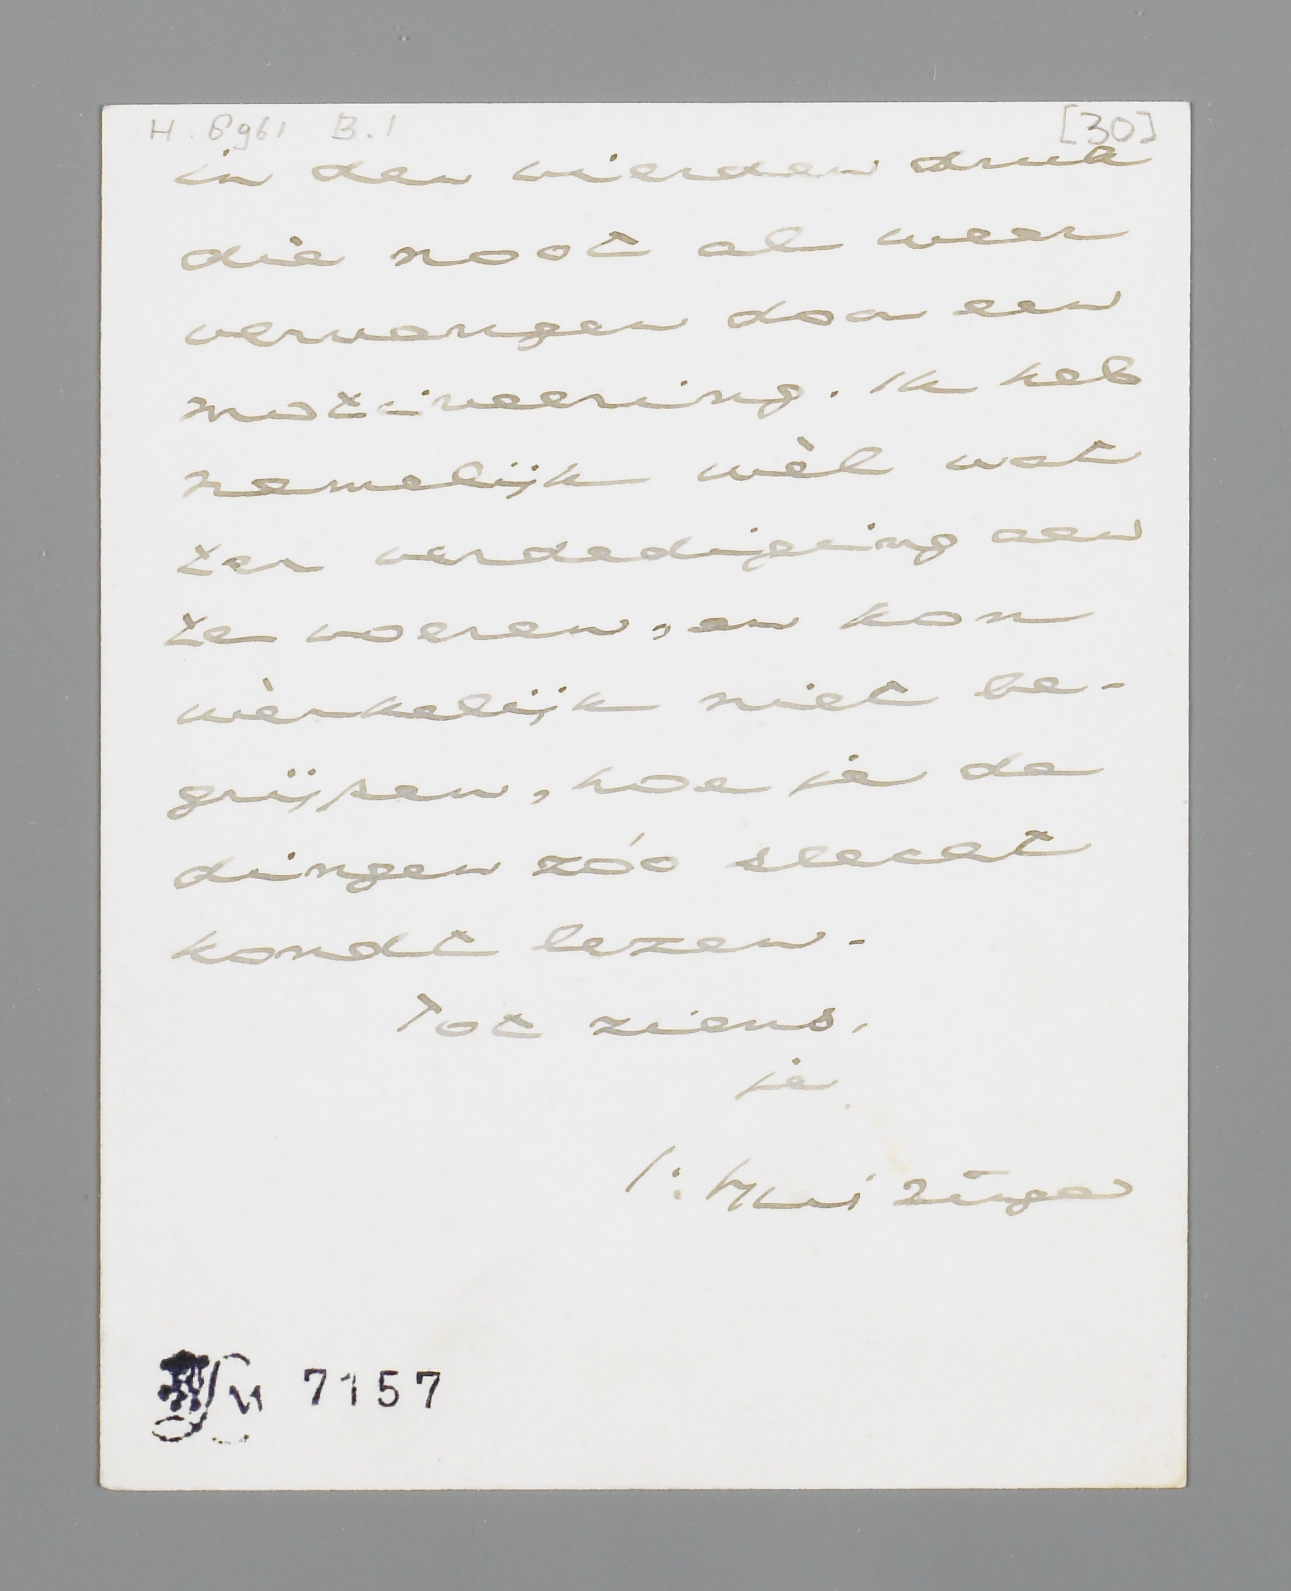 H. 8961 B.1
[30]
in den vierden druk
die noot al weer
vervangen door een
motiveering. Ik heb
namelijk wèl wat
ter verdediging aan
te voeren, en kon
wèrkelijk niet be-
grijpen, hoe je de
dingen zóo slecht
kondt lezen.
Tot ziens,
je
J. Huizinga
7157